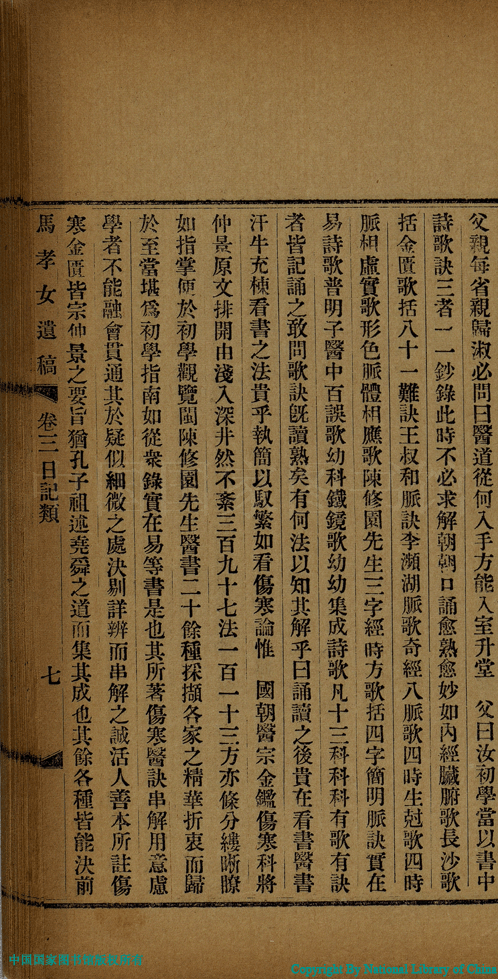 父親每省親歸淑必問曰醫道從何入手方能入室升堂　父曰汝初學當以書中
詩歌訣三者一一鈔錄此時不必求解朝朝口誦愈熟愈妙如內經臟腑歌長沙歌
括金匱歌括八十一難訣王叔和脈訣李瀕湖脈歌奇經八脈歌四時生尅歌四時
脈相虛實歌形色脈體相應歌陳修園先生三字經時方歌括四字簡明脈訣實在
易詩歌普明子醫中百誤歌幼科鐵鏡歌幼幼集成詩歌凡十三科科科有歌有訣
者皆記誦之敢問歌訣旣讀熟矣有何法以知其解乎曰誦讀之後貴在看書醫書
汗牛充棟看書之法貴乎執簡以馭繁如看傷寒論惟　國朝醫宗金鑑傷寒科將
仲景原文排開由淺入深井然不紊三百九十七法一百一十三方亦條分縷晰瞭
如指掌便於初學觀覽閩陳修園先生醫書二十餘種採擷各家之精華折衷而歸
於至當堪爲初學指南如從衆錄實在易等書是也其所著傷寒醫訣串解用意慮
學者不能融會貫通其於疑似細微之處決剔詳辨而串解之誠活人善本所註傷
寒金匱皆宗仲景之要旨猶孔子祖述堯舜之道而集其成也其餘各種皆能決前
馬孝女遺稿　卷三日記類　七
中国国家图书馆版权所有
Copyright By National Library of China